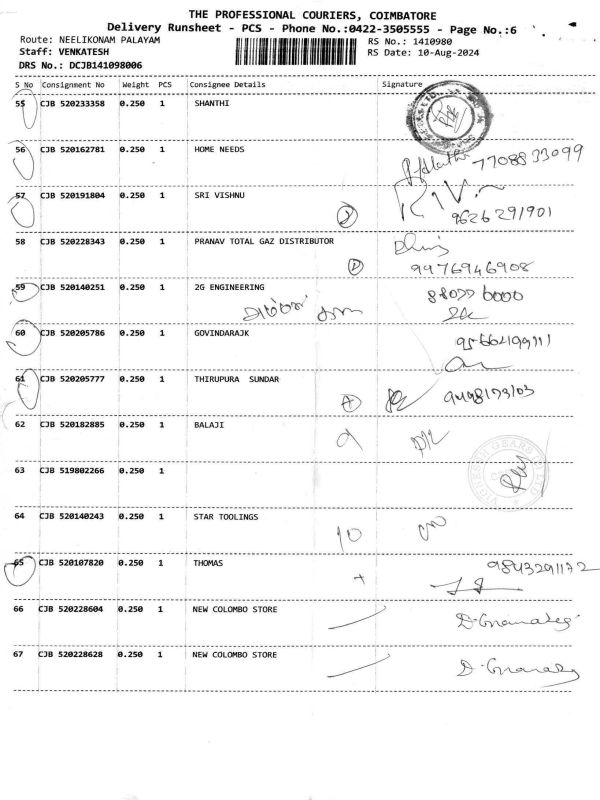 THE PROFESSIONAL COURIERS, COIMBATORE
Delivery Runsheet - PCS - Phone No.:0422-3505555 - Page No.:6
Route: NEELIKONAM PALAYAM RS No.: 1410980
Staff: VENKATESH RS Date: 10-Aug-2024
DRS No.: DCJB141098006
S No Consignment No Weight PCS Consignee Details Signature
55 CJB 520233358 0.250 1 SHANTHI
56 CJB 520162781 0.250 1 HOME NEEDS
7708833099
57 CJB 520191804 0.250 1 SRI VISHNU
9626291901
58 CJB 520228343 0.250 1 PRANAV TOTAL GAZ DISTRIBUTOR
9976946908
59 CJB 520140251 0.250 1 2G ENGINEERING
60 CJB 520205786 0.250 1 GOVINDARAJK
61 CJB 520205777 0.250 1 THIRUPURA SUNDAR
62 CJB 520182885 0.250 1 BALAJI
63 CJB 519802266 0.250 1
64 CJB 520140243 0.250 1 STAR TOOLINGS
10
65 CJB 520107820 0.250 1 THOMAS
9843291172
66 CJB 520228604 0.250 1 NEW COLOMBO STORE
67 CJB 520228628 0.250 1 NEW COLOMBO STORE